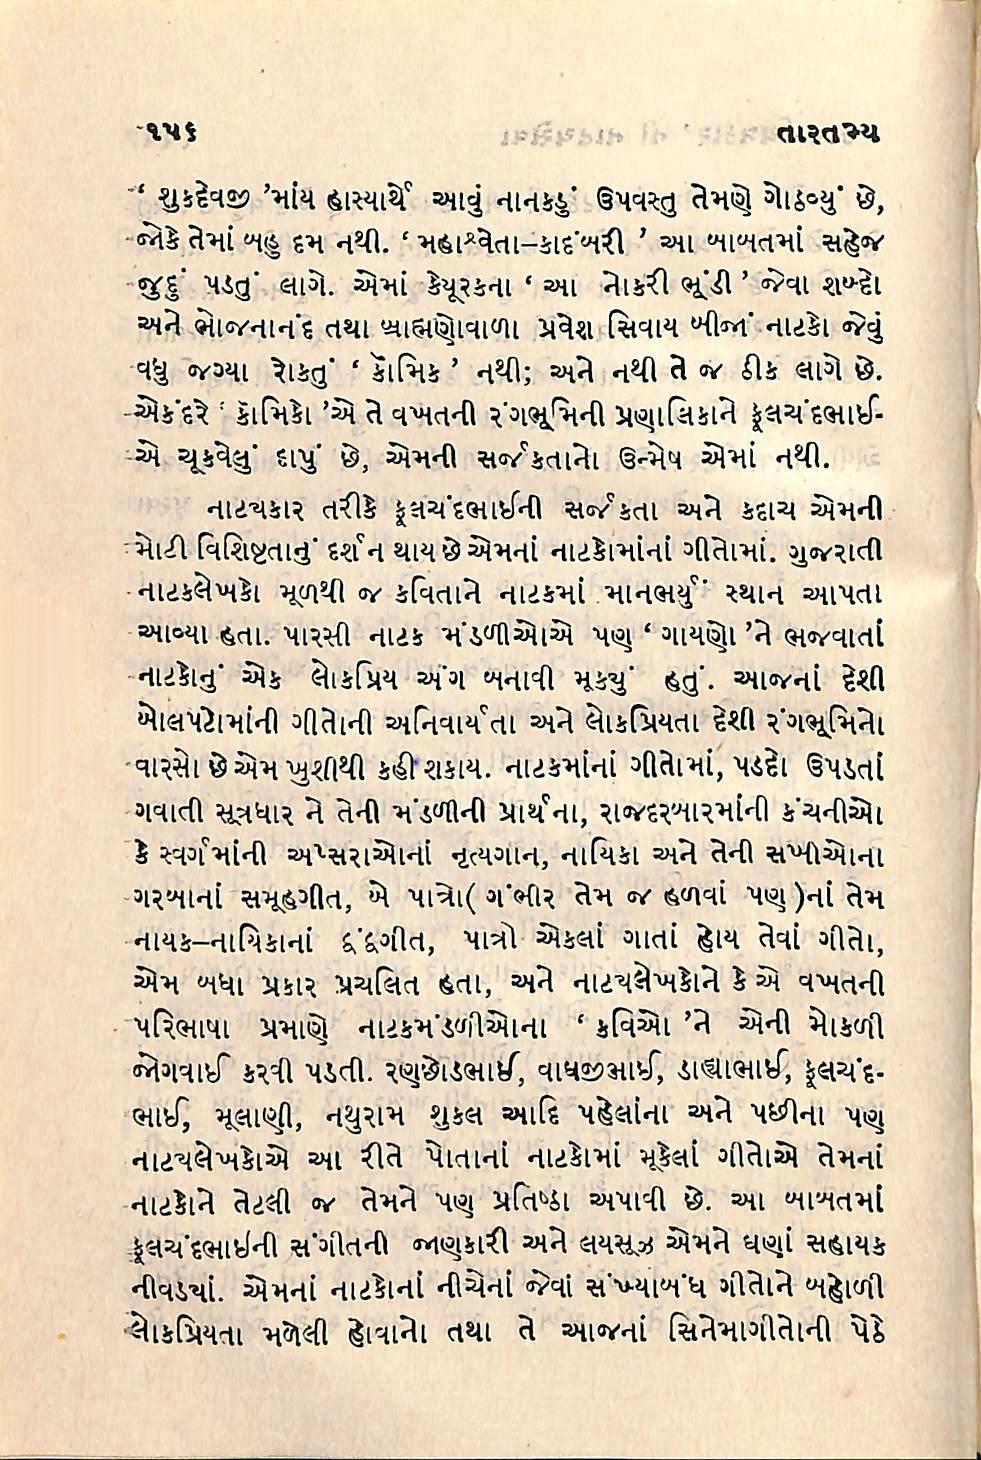 ૧૫૬ તારતમ્ય
‘ શુકદેવજી ’માંય હાસ્યાર્થે આવું નાનકડું ઉપવસ્તુ તેમણે ગોઠવ્યું છે,
જોકે તેમાં બહુ દમ નથી. ‘ મહાશ્વેતા–કાદંબરી ’ આ બાબતમાં સહેજ
જુદું પડતું લાગે. એમાં કેયૂરકના ‘ આ નોકરી ભૂંડી ’ જેવા શબ્દો
અને ભોજનાનંદ તથા બ્રાહ્મણોવાળા પ્રવેશ સિવાય બીજાં નાટકો જેવું
વધુ જગ્યા રોકતું ‘ કૉમિક ’ નથી; અને નથી તે જ ઠીક લાગે છે.
એકંદરે ‘ કૉમિકો ’એ તે વખતની રંગભૂમિની પ્રણાલિકાને ફૂલચંદભાઈ-
એ ચૂકવેલું દાપું છે, એમની સર્જકતાનો ઉન્મેષ એમાં નથી.
નાટ્યકાર તરીકે ફૂલચંદભાઈની સર્જકતા અને કદાચ એમની
મોટી વિશિષ્ટતાનું દર્શન થાય છે એમનાં નાટકોમાંનાં ગીતોમાં. ગુજરાતી
નાટકલેખકો મૂળથી જ કવિતાને નાટકમાં માનભર્યું સ્થાન આપતા
આવ્યા હતા. પારસી નાટક મંડળીઓએ પણ ‘ ગાયણો ’ને ભજવાતાં
નાટકોનું એક લોકપ્રિય અંગ બનાવી મૂક્યું હતું. આજનાં દેશી
બોલપટોમાંની ગીતોની અનિવાર્યતા અને લોકપ્રિયતા દેશી રંગભૂમિનો
વારસો છે એમ ખુશીથી કહી શકાય. નાટકમાંનાં ગીતોમાં, પડદો ઉપડતાં
ગવાતી સૂત્રધાર ને તેની મંડળીની પ્રાર્થના, રાજદરબારમાંની કંચનીઓ
કે સ્વર્ગમાંની અપ્સરાઓનાં નૃત્યગાન, નાયિકા અને તેની સખીઓના
ગરબાનાં સમૂહગીત, બે પાત્રો( ગંભીર તેમ જ હળવાં પણ )નાં તેમ
નાયક–નાયિકાનાં દ્વંદ્વગીત, પાત્રો એકલાં ગાતાં હોય તેવાં ગીતો,
એમ બધા પ્રકાર પ્રચલિત હતા, અને નાટ્યલેખકોને કે એ વખતની
પરિભાષા પ્રમાણે નાટકમંડળીઓના ‘ કવિઓ ’ને એની મોકળી
જોગવાઈ કરવી પડતી. રણછોડભાઈ, વાઘજીભાઈ, ડાહ્યાભાઈ, ફૂલચંદ-
ભાઈ, મૂલાણી, નથુરામ શુકલ આદિ પહેલાંના અને પછીના પણ
નાટ્યલેખકોએ આ રીતે પોતાનાં નાટકોમાં મૂકેલાં ગીતોએ તેમનાં
નાટકોને તેટલી જ તેમને પણ પ્રતિષ્ઠા અપાવી છે. આ બાબતમાં
ફૂલચંદભાઈની સંગીતની જાણકારી અને લયસૂઝ એમને ઘણાં સહાયક
નીવડ્યાં. એમનાં નાટકોનાં નીચેનાં જેવાં સંખ્યાબંધ ગીતોને બહોળી
લોકપ્રિયતા મળેલી હોવાનો તથા તે આજનાં સિનેમાગીતોની પેઠે